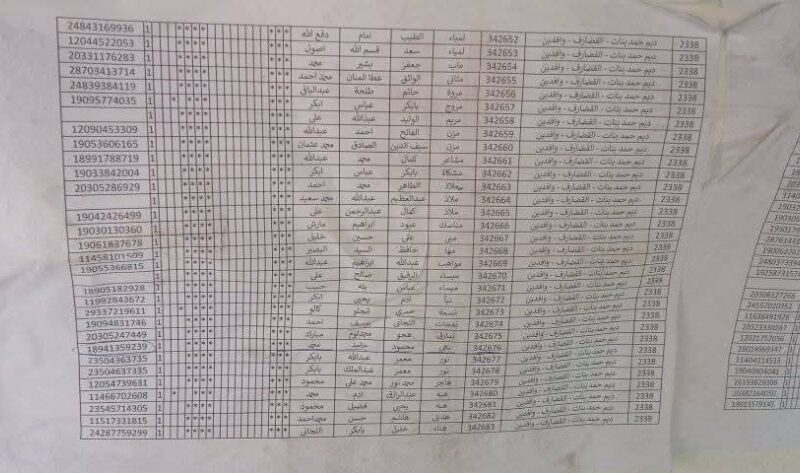 2338 ديم حمد بنات - القضارف - وافدين 342652 لمياء الطيب امام دفع الله 1 24843169936
2338 ديم حمد بنات - القضارف - وافدين 342653 لمياء سعد قسم الله اصول 1 12044522053
2338 ديم حمد بنات - القضارف - وافدين 342654 ماب جعفر بشير محمد 1 20331176283
2338 ديم حمد بنات - القضارف - وافدين 342655 مثانى الواثق عطا المنان محمد احمد 1 28703413714
2338 ديم حمد بنات - القضارف - وافدين 342656 مروة حاتم طلحة عبدالباقى 1 24839384119
2338 ديم حمد بنات - القضارف - وافدين 342657 مروج بابكر عباس ابكر 1 19095774035
2338 ديم حمد بنات - القضارف - وافدين 342658 مريم الوليد عبدالله على 1
2338 ديم حمد بنات - القضارف - وافدين 342659 مزن الفاتح احمد عبدالله 1 12090453309
2338 ديم حمد بنات - القضارف - وافدين 342660 مزن سيف الدين الصادق محمد عثمان 1 19053606165
2338 ديم حمد بنات - القضارف - وافدين 342661 مشاعر كمال محمد عبدالله 1 18991788719
2338 ديم حمد بنات - القضارف - وافدين 342662 مشكاة بابكر عباس ابكر 1 19033842004
2338 ديم حمد بنات - القضارف - وافدين 342663 ملاذ الطاهر محمد احمد 1 20305286929
2338 ديم حمد بنات - القضارف - وافدين 342664 ملاذ عبدالعظيم عبدالله محمد سعيد 1
2338 ديم حمد بنات - القضارف - وافدين 342665 ملاذ كمال عبدالرحمن على 1 19042426499
2338 ديم حمد بنات - القضارف - وافدين 342666 مناسك عبود ابراهيم مارش 1 19030130360
2338 ديم حمد بنات - القضارف - وافدين 342667 منى على حسين خليل 1 19061837678
2338 ديم حمد بنات - القضارف - وافدين 342668 مها حافظ السيد البصير 1 11458101509
2338 ديم حمد بنات - القضارف - وافدين 342669 مواهب عبدالله ابراهيم عبدالله 1 19055366815
2338 ديم حمد بنات - القضارف - وافدين 342670 ميساء الرفيق صالح على 1
2338 ديم حمد بنات - القضارف - وافدين 342671 ميساء عباس حبيب 1 18905182928
2338 ديم حمد بنات - القضارف - وافدين 342672 نبأ ادم يحيى ابكر 1 11992843672
2338 ديم حمد بنات - القضارف - وافدين 342673 نسمة انجلو كالو 1 29337219611
2338 ديم حمد بنات - القضارف - وافدين 342674 نفحات التجانى ضيف احمد 1 19094831746
2338 ديم حمد بنات - القضارف - وافدين 342675 نمارق هجو محمدتوم مبارك 1 20305247449
2338 ديم حمد بنات - القضارف - وافدين 342676 نهى محمود حامد محمد 1 18941359239
2338 ديم حمد بنات - القضارف - وافدين 342677 نور معمر عبدالله بابكر 1 23504363735
2338 ديم حمد بنات - القضارف - وافدين 342678 نور معمر عبدالملك بابكر 1 23504637335
2338 ديم حمد بنات - القضارف - وافدين 342679 هاجر محمد نور محمد على محمود 1 12054739631
2338 ديم حمد بنات - القضارف - وافدين 342680 هبه عبدالرازق ادم محمد 1 11466702608
2338 ديم حمد بنات - القضارف - وافدين 342681 هبه يحيى فضيل محمود 1 23545714305
2338 ديم حمد بنات - القضارف - وافدين 342682 هديل هاشم حسن محمداحمد 1 11517331815
2338 ديم حمد بنات - القضارف - وافدين 342683 هناء خليل بابكر التجانى 1 24287759299